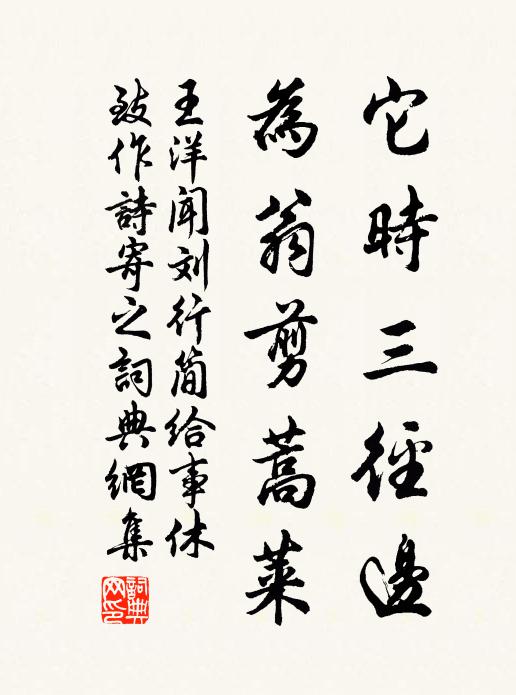 它時三徑邊
為翁剪蒿萊
王洋闻刘行简给事休
致作詩寄之詞典網集
詞典网印